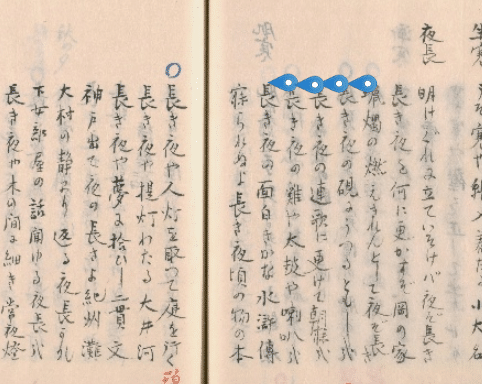 寒や綿入着たる小大名
夜長
夜ぞ長き
長き夜を何に更かすぞ岡の家
燭の燃えきれんとして夜ぞ長き
長き夜の硯にうつるともし哉
長き夜の連歌に更けて
長き夜の や太鼓や喇叭哉
長き夜の面白きかな水滸傳
寐られぬよ長き夜頃の物の本
長き夜や人灯を取つて庭を行く
長き夜や提灯わたる大井河
長き夜や夢に拾ひし二貫文
神戸出て夜の長さよ紀州灘
大村の静まり返る夜長かな
下女部屋の話聞ゆる夜長哉
長き夜や木の間に細き常夜燈